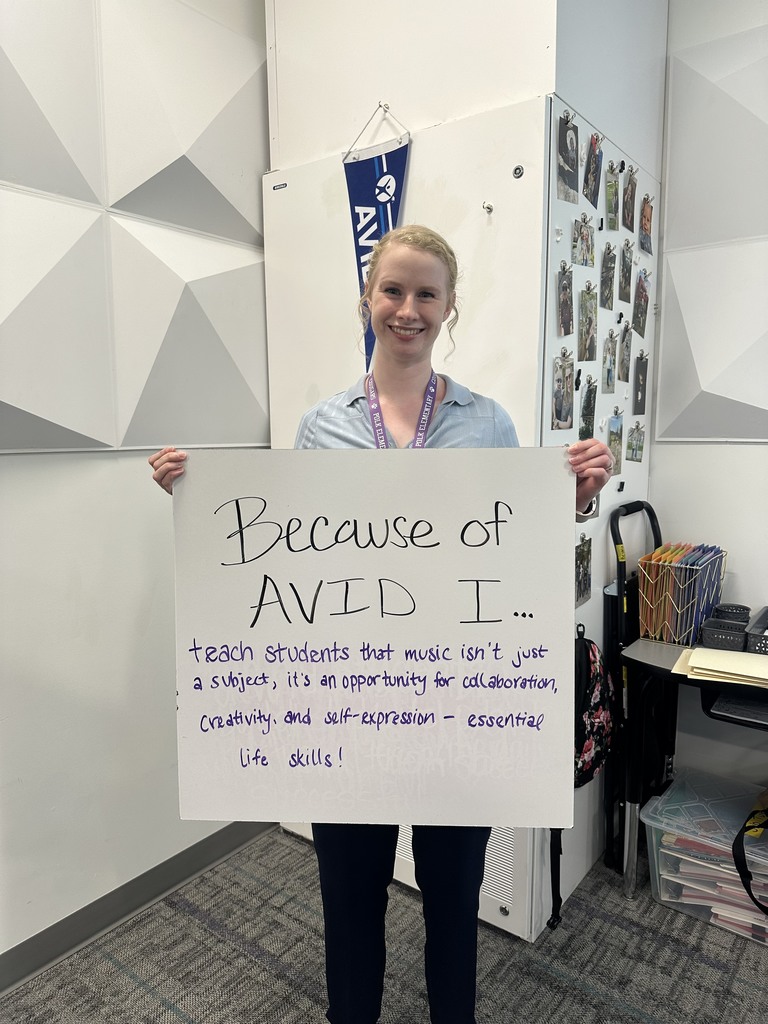 AVID
POLK ELEMENTARY
POLK ELEMENTARY
Because of
AVID I...
teach students that music isn't just
a subject, it's an opportunity for collaboration,
creativity, and self-expression – essential
life skills!